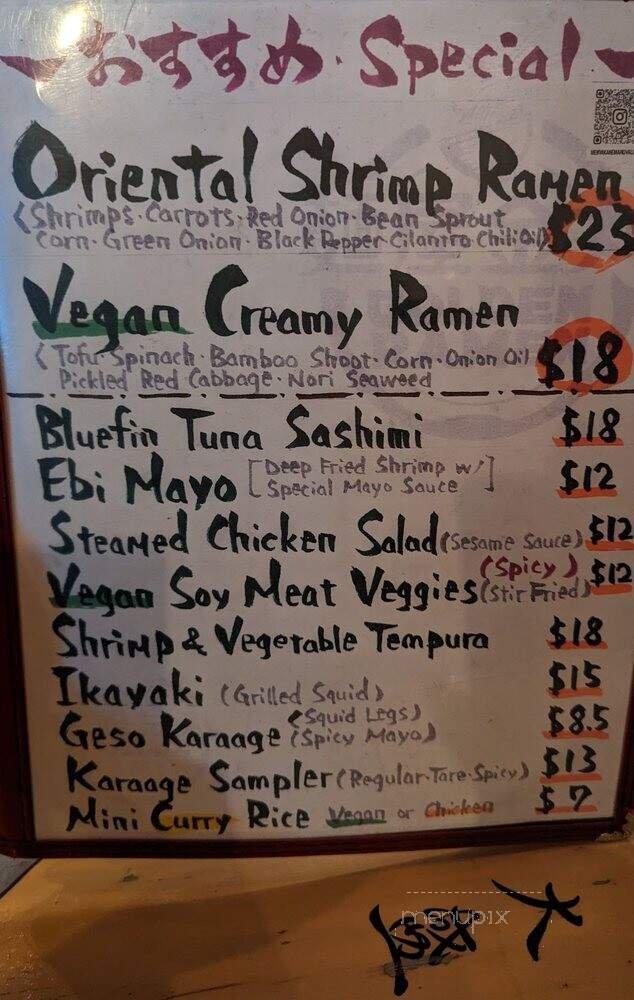 おすすめ・Special
Oriental Shrimp Ramen
(Shrimps・Carrots・Red Onion・Bean Sprout
Corn・Green Onion・Black Pepper・Cilantro Chili Oil) $23
Vegan Creamy Ramen
(Tofu・Spinach・Bamboo Shoot・Corn・Onion Oil
Pickled Red Cabbage・Nori Seaweed $18
Bluefin Tuna Sashimi $18
Ebi Mayo [Deep Fried Shrimp w/ Special Mayo Sauce] $12
Steamed Chicken Salad (Sesame Sauce) $12
Vegan Soy Meat Veggies (Spicy) (Stir Fried) $12
Shrimp & Vegetable Tempura $18
Ikayaki (Grilled Squid) $15
Geso Karaage (Squid Legs) (Spicy Mayo) $8.5
Karaage Sampler (Regular・Tare・Spicy) $13
Mini Curry Rice Vegan or Chicken $7
menupix